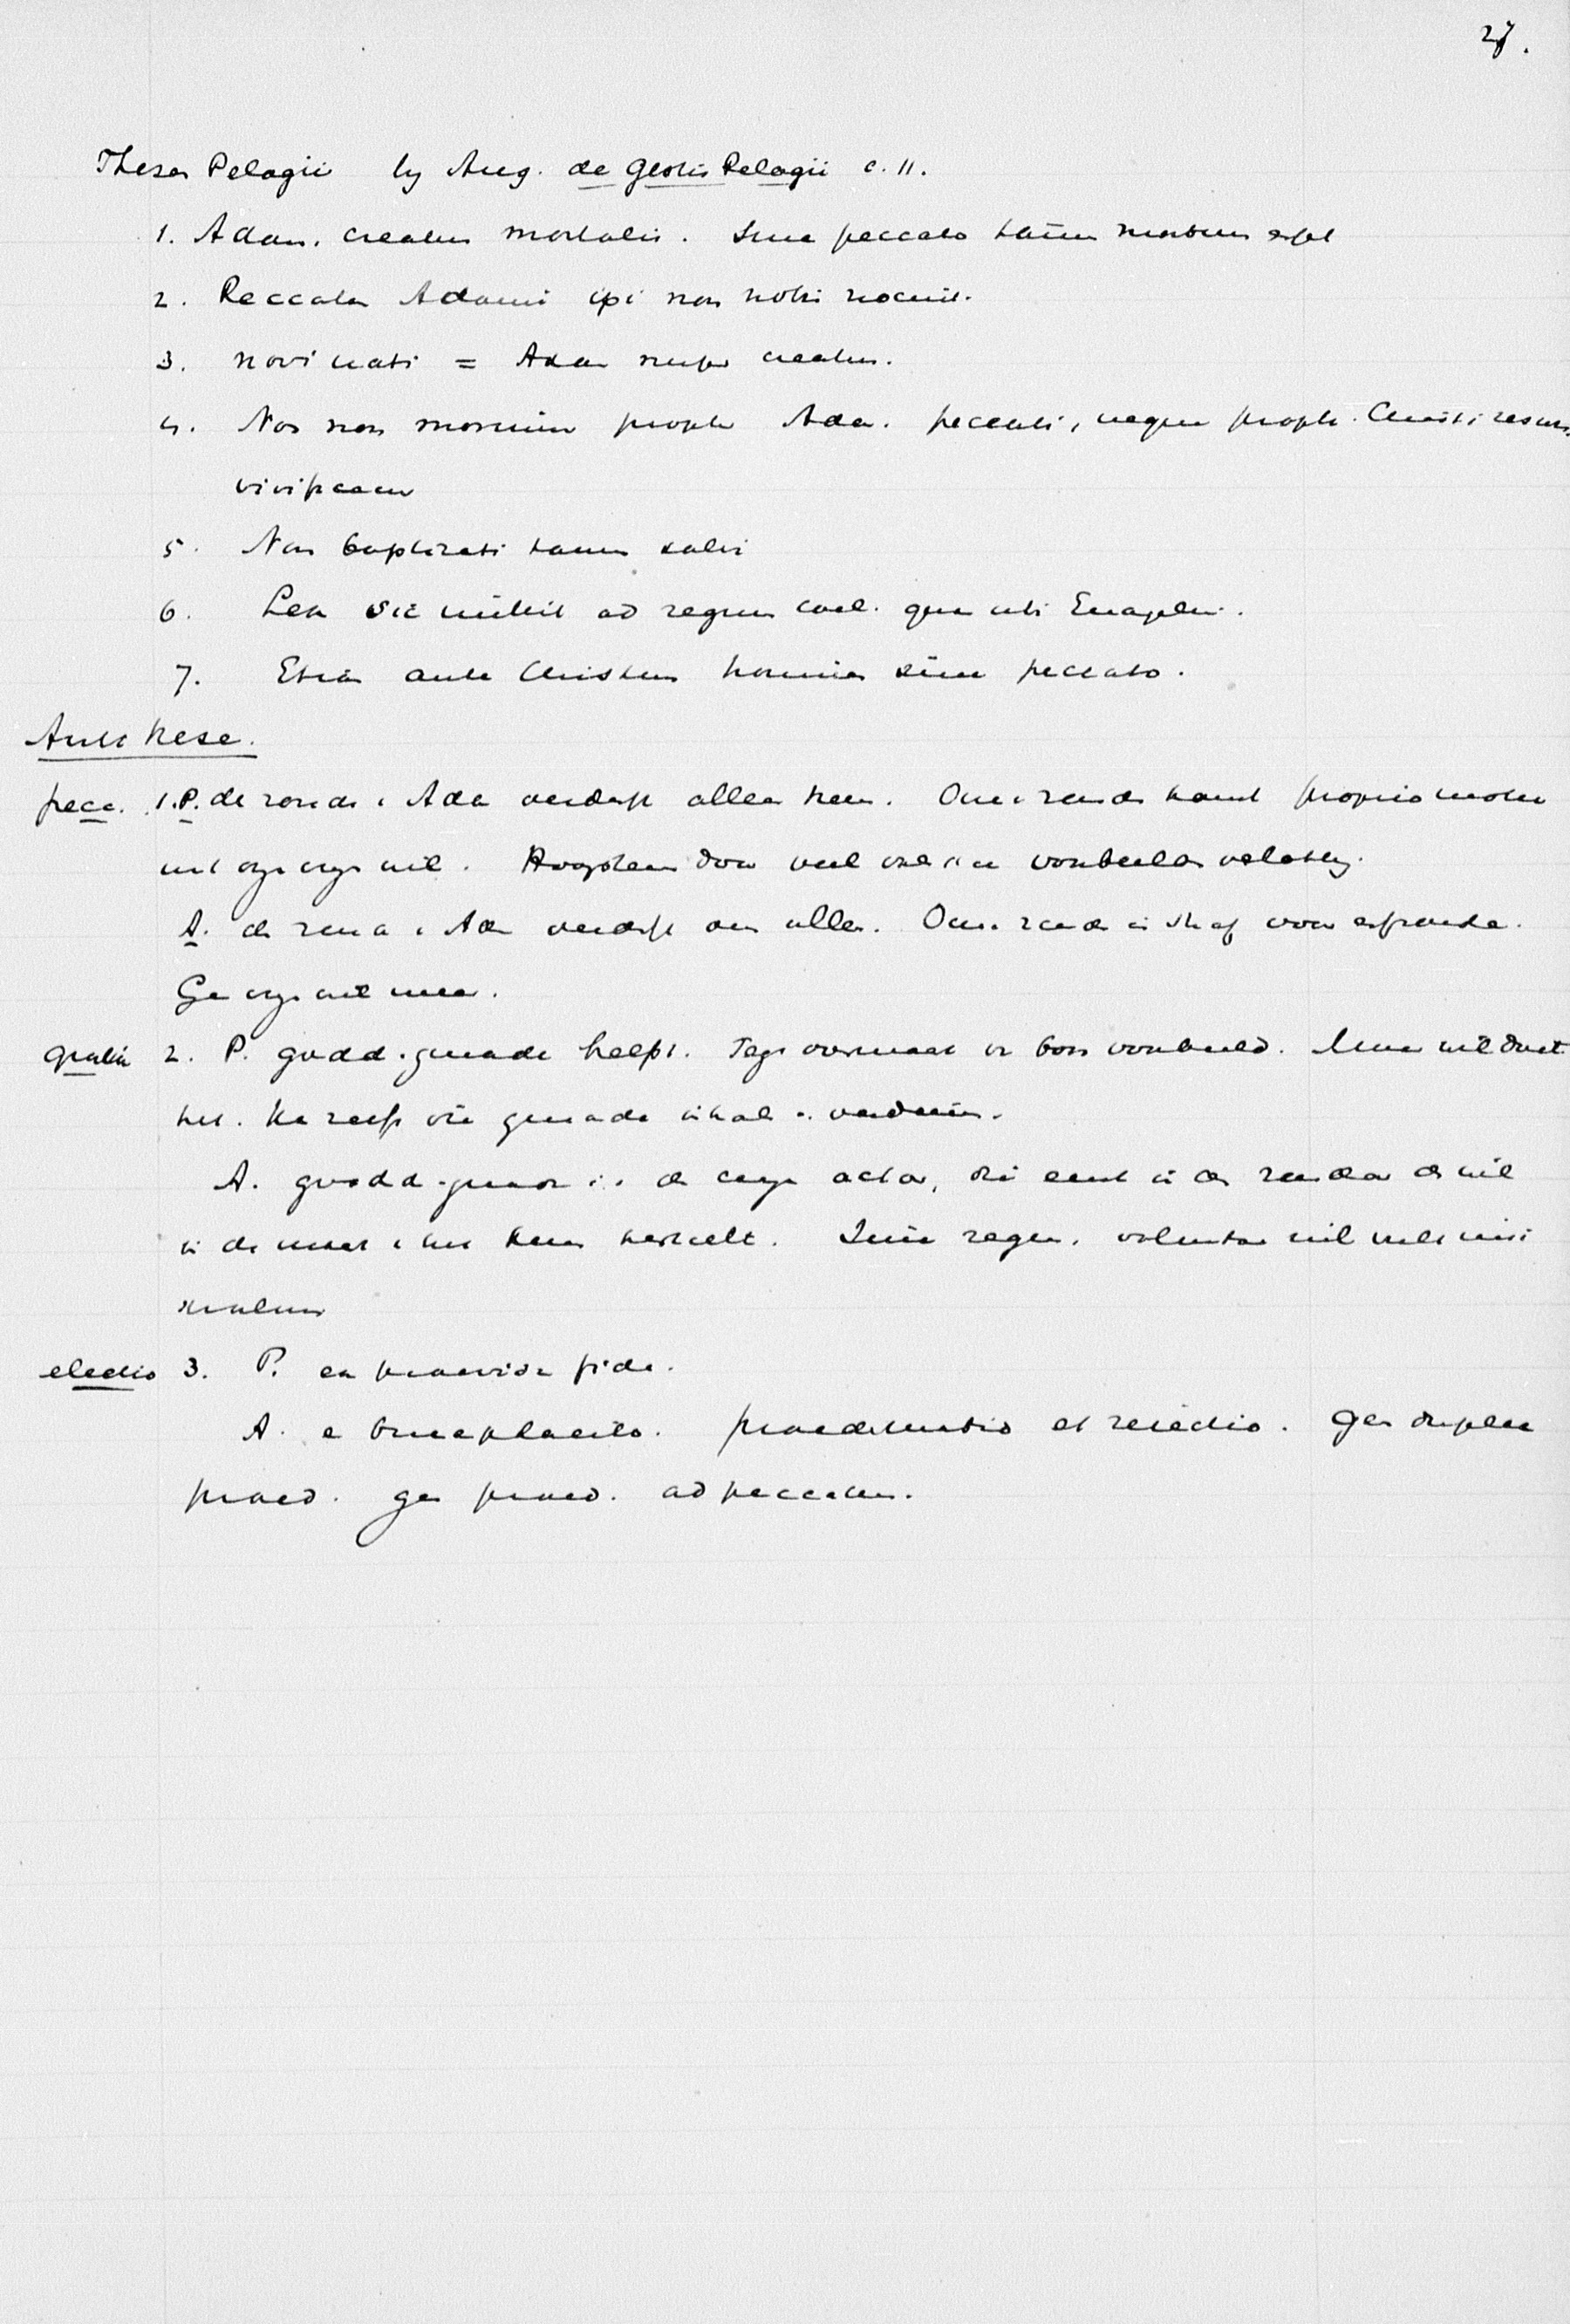 27.
Theses Pelagii by Aug. de Gestis Pelagii c. 11.
1. Adam. creatus mortalis. Sine peccato tamen mortuus esset
2. Peccatum Adami ipsi non nobis nocuit.
3. novi nati = Adam nuper creatus.
4. Nos non morimur propter Ada. peccati, neque propter Christi resurr.
vivificamur
5. Non baptizati tamen salvi
6. Lex sic mittit ad regnum coel. quam uti Evangelium.
7. Etiam ante Christum homines sine peccato.
Antithese.
pecc. 1. P. de zonde v Ada verderft alleen hem. Onze zonde komt proprio motu
uit onze vrije wil. door veel voorbeelden
A. de zonde v Ada verderft ons allen. Onze zonde is straf voor erfzonde.
Geen vrije wil meer.
gratia 2. P. godd. genade helpt. goed voorbeeld. Mens wil doet
het. Hij zelf die genade inhaal verdienen.
A. godd. genade is de enige actor, die eerst in de zondaar de wil
in de mens herstelt. Sine regen. voluntas nil vult nisi
malum
electio 3. P. ex praevisa fide.
A. e beneplacito. praedestinatio et reiectio. geen duplex
praed. geen praed. ad peccatum.